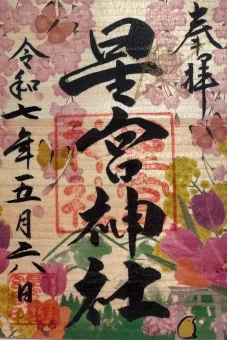 奉拝
星宮神社
令和七年五月六日